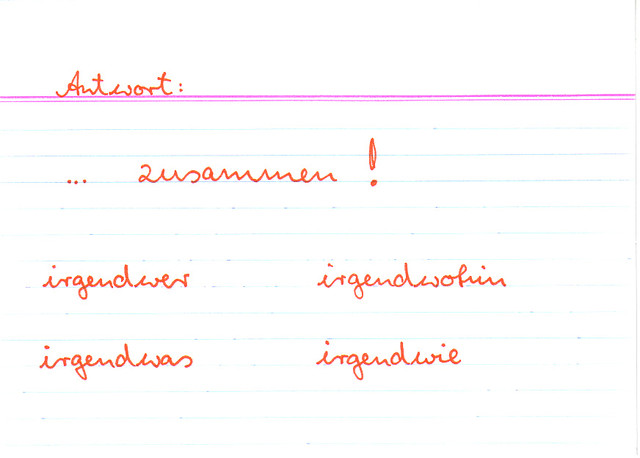 Antwort:
... zusammen!
irgendwer irgendwohin
irgendwas irgendwie